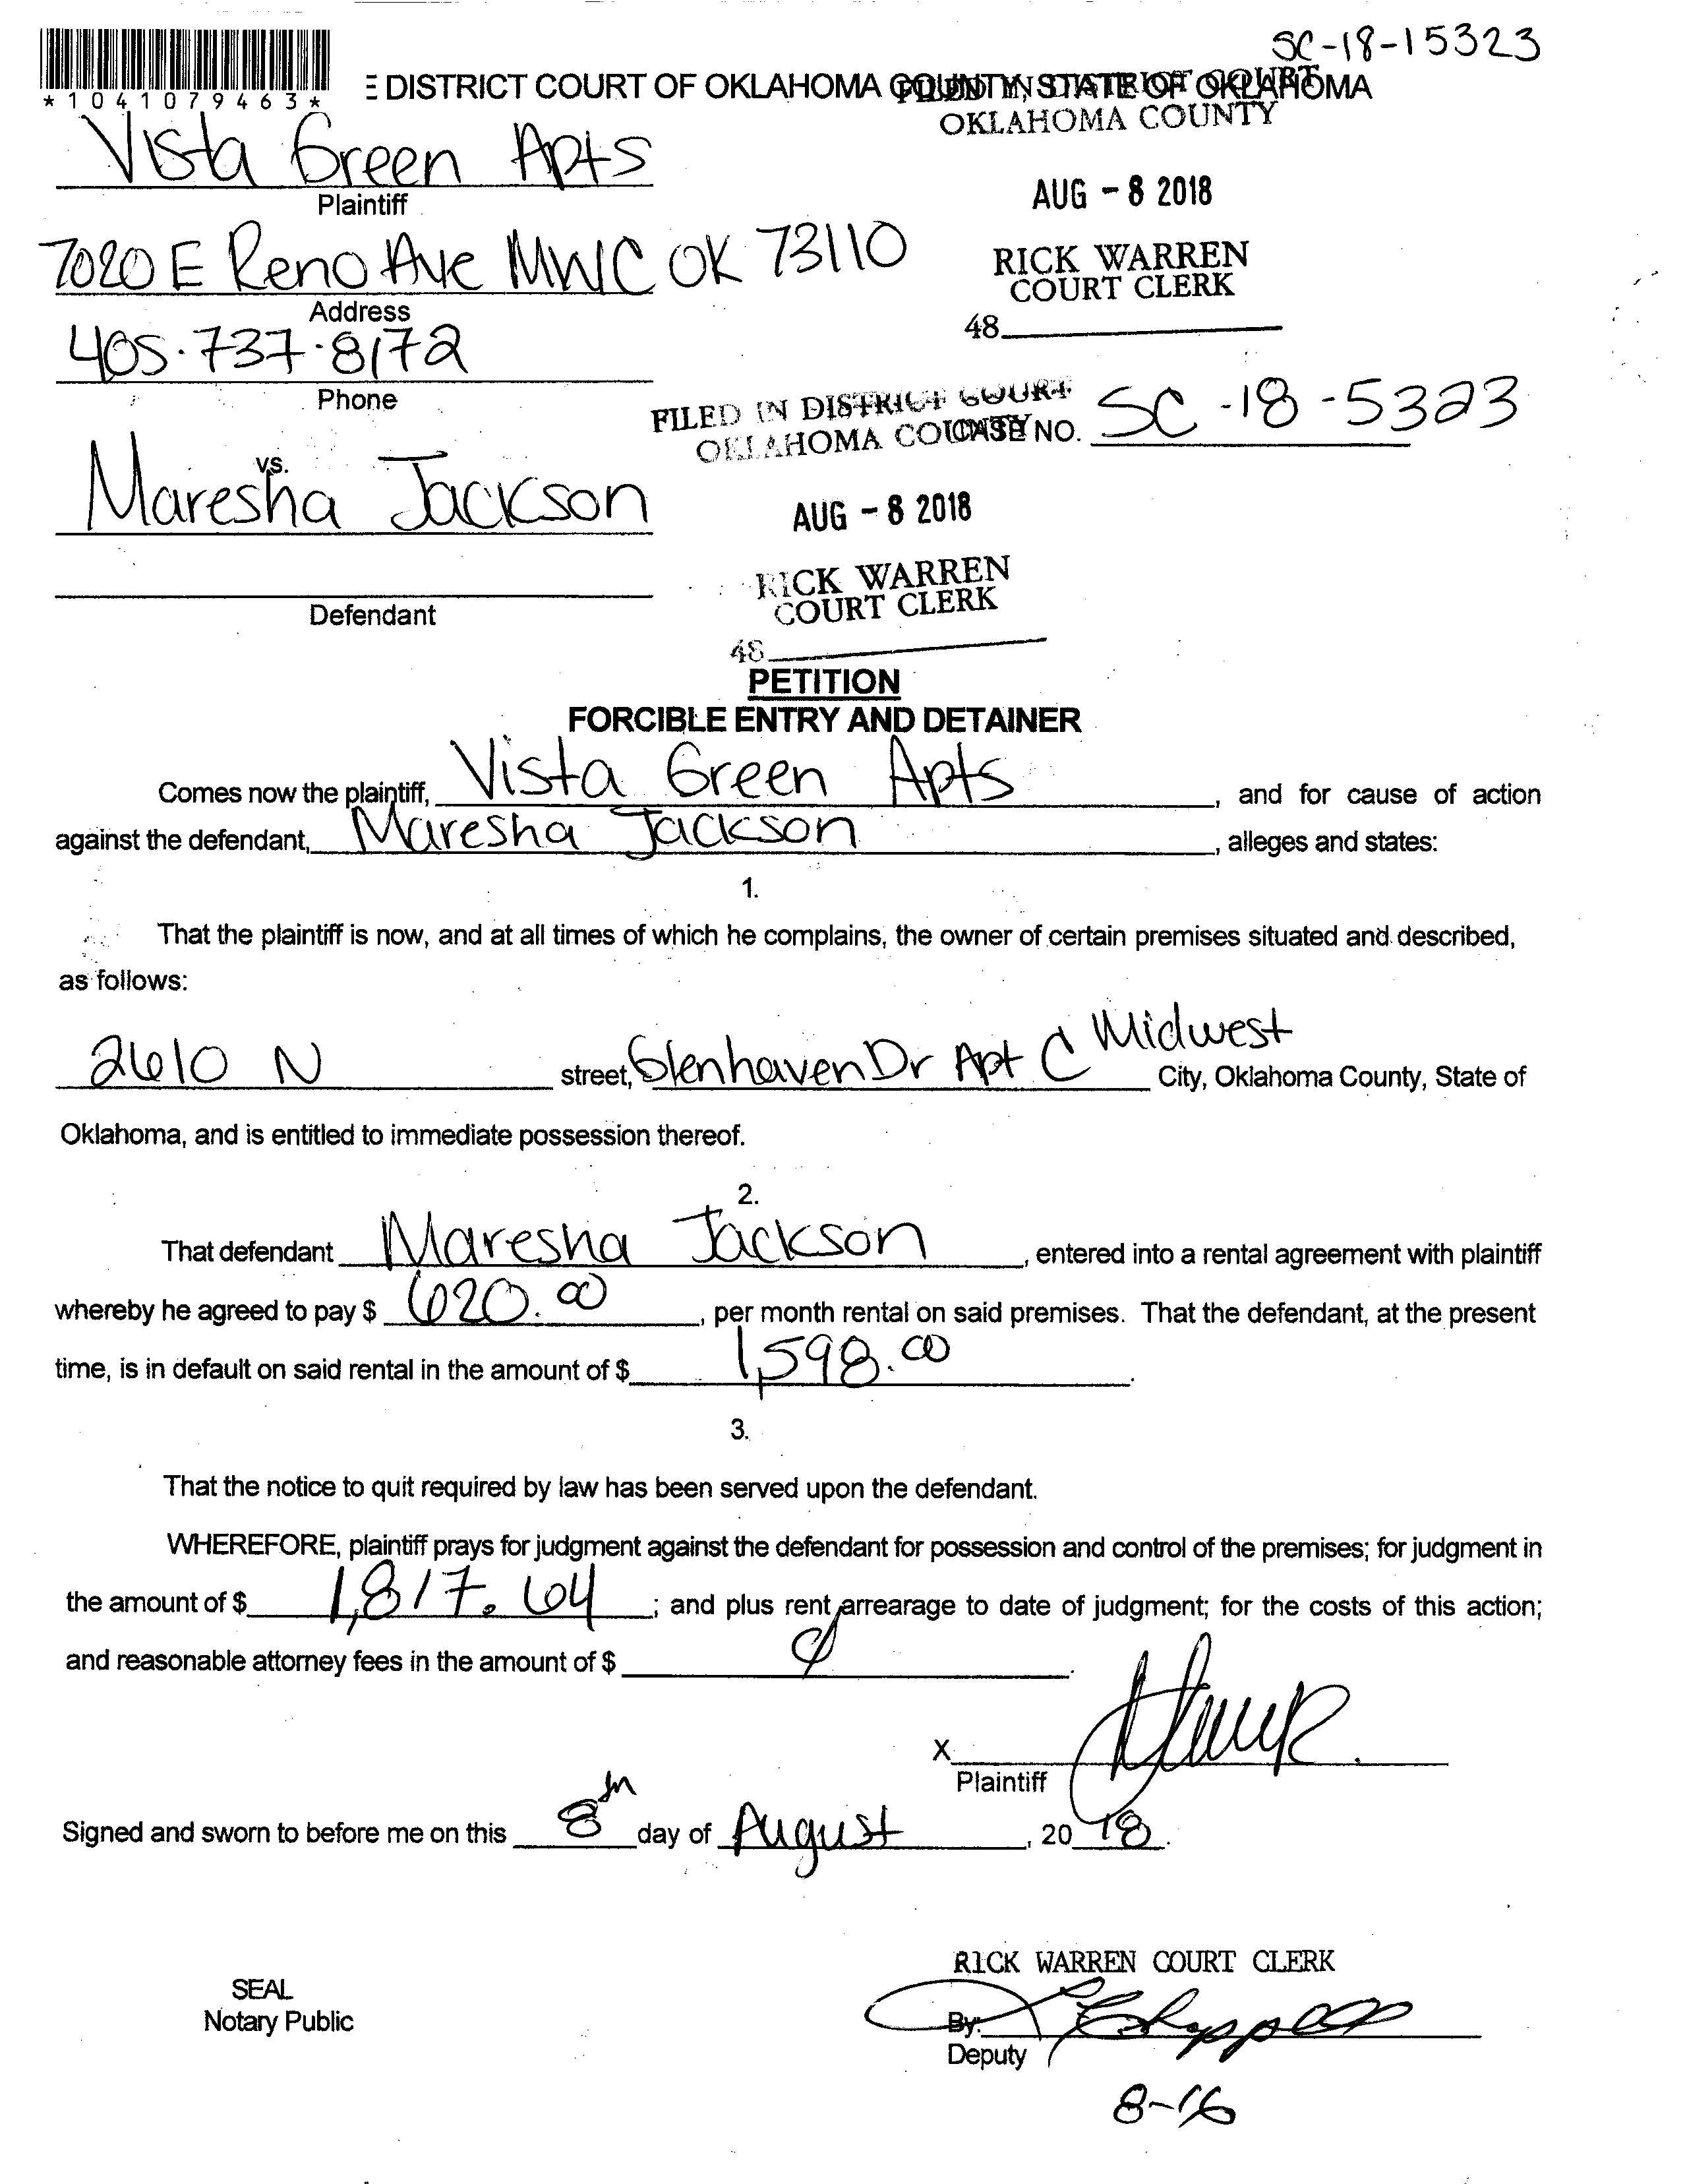 SC-18-15323
*1041079463*
E DISTRICT COURT OF OKLAHOMA COUNTY, STATE OF OKLAHOMA
FILED IN DISTRICT COURT
OKLAHOMA COUNTY
Vista Green Apts
Plaintiff
AUG - 8 2018
7020 E Reno Ave MWC OK 73110
Address
RICK WARREN
COURT CLERK
48
405.737.8172
Phone
FILED IN DISTRICT COURT
OKLAHOMA COUNTY
CASE NO. SC-18-5323
vs.
Maresha Jackson
AUG - 8 2018
Defendant
RICK WARREN
COURT CLERK
48
PETITION
FORCIBLE ENTRY AND DETAINER
Comes now the plaintiff, Vista Green Apts, and for cause of action
against the defendant, Maresha Jackson, alleges and states:
1.
That the plaintiff is now, and at all times of which he complains, the owner of certain premises situated and described,
as follows:
2610 N street, Glenhaven Dr Apt C Midwest City, Oklahoma County, State of
Oklahoma, and is entitled to immediate possession thereof.
2.
That defendant Maresha Jackson, entered into a rental agreement with plaintiff
whereby he agreed to pay $ 620.00, per month rental on said premises. That the defendant, at the present
time, is in default on said rental in the amount of $ 1,598.00.
3.
That the notice to quit required by law has been served upon the defendant.
WHEREFORE, plaintiff prays for judgment against the defendant for possession and control of the premises; for judgment in
the amount of $ 1,817.64; and plus rent arrearage to date of judgment; for the costs of this action;
and reasonable attorney fees in the amount of $
X
Plaintiff
Signed and sworn to before me on this 8th day of August, 2018.
RICK WARREN COURT CLERK
SEAL
Notary Public
By:
Deputy
8-16